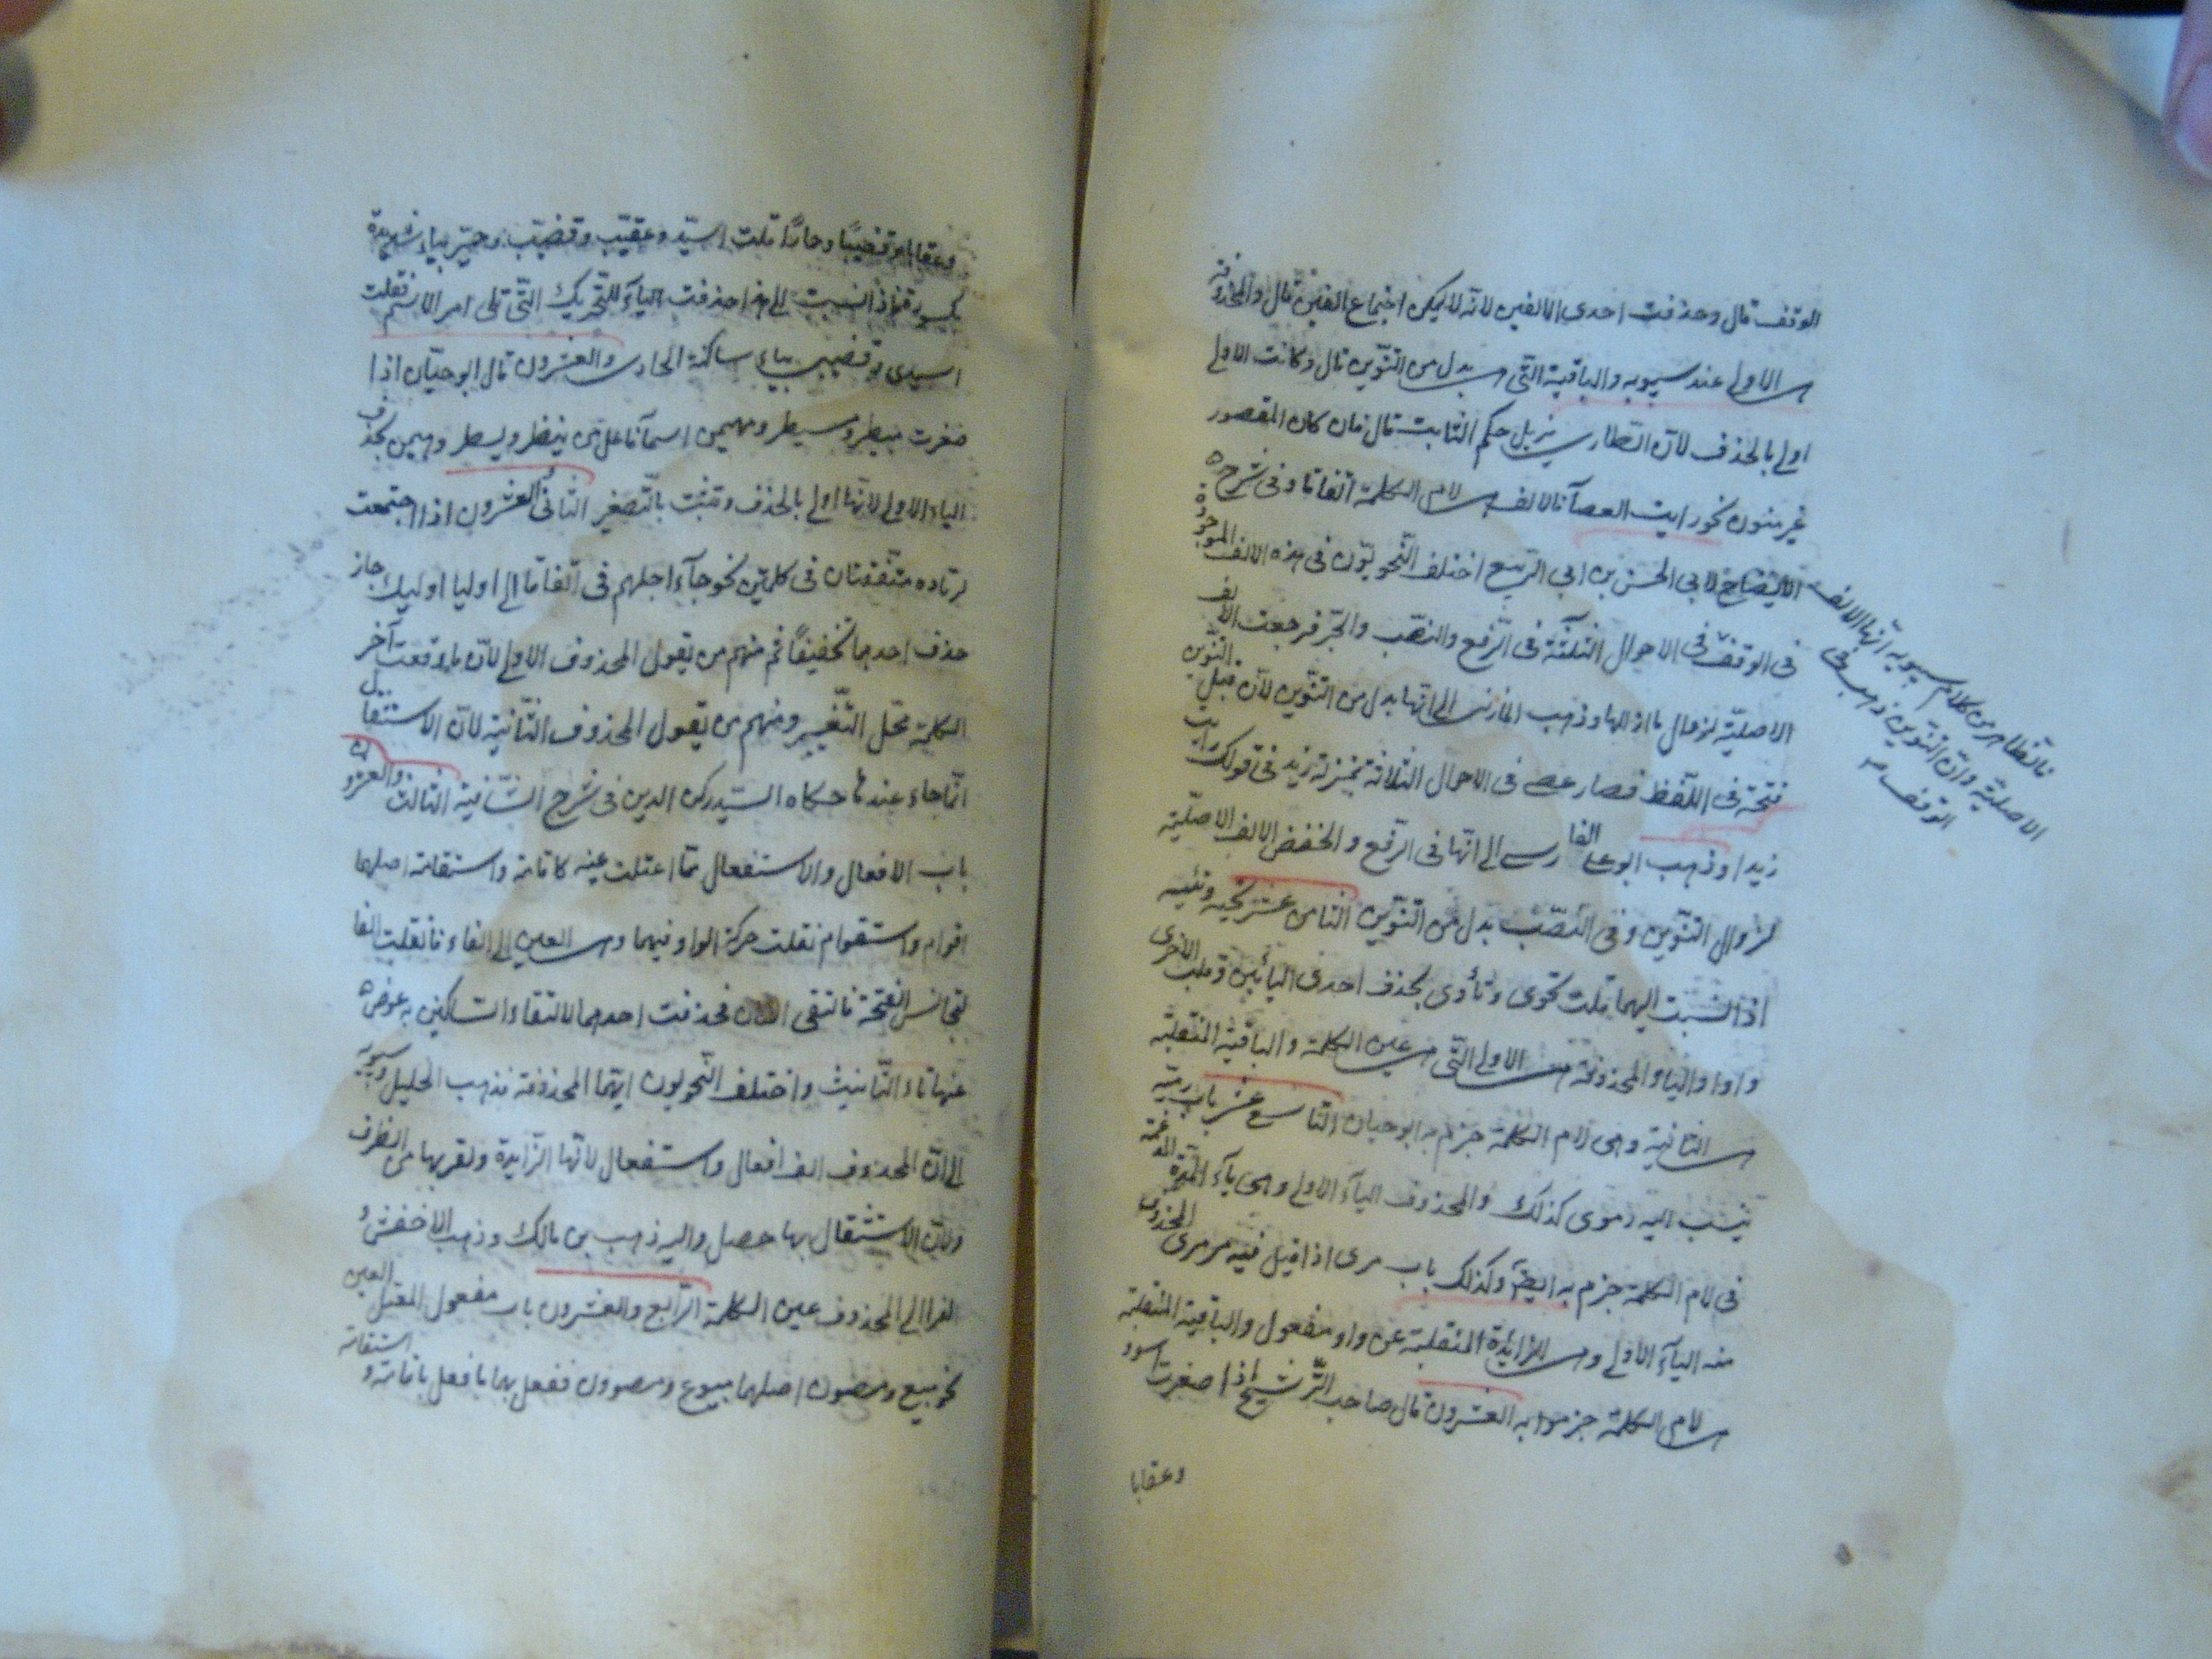 الوقف قال وحذفت احدى الالفين لانه لا يمكن اجتماع الفين قال والمحذوفة
هي الاولى عند سيبويه والباقية التي هي بدل من التنوين قال وكانت الاولى
اولى بالحذف لان الطاري يزيل حكم الثابت قال فان كان المقصور
غير منون نحو رايت العصا فالالف هي لام الكلمة اتفاقا وفي شرح
الايضاح لابي الحسن بن ابي الربيع اختلف النحويون في هذه الالف الموجودة
في الوقف في الاحوال الثلثة في الرفع والنصب والجر فرجعت الالف
الاصلية لزوال ما ازالها وذهب المازني الى انها بدل من التنوين لان قبل التنوين
فتحة في اللفظ فصار عصى في الاحوال الثلاثة بمنزلة زيد في قولك رايت
زيدا وذهب ابو علي الفارسي الى انها في الرفع والخفض الالف الاصلية
لزوال التنوين وفي النصب بدل من التنوين الثامن عشر تحية وتئية
اذا نسبت اليهما قلت تحوي وتأوي بحذف احدى اليائين وقلب الاخرى
واوا والياء المحذوفة هي الاولى التي هي عين الكلمة والباقية المنقلبة
هي الثانية وهي لام الكلمة جزم به ابو حيان التاسع عشر باب رمية
ينسب اليه رموي كذلك والمحذوف الياء الاولى وهي ياء المدة المدغمة
في لام الكلمة جزم به ايضا وكذلك باب مرمى اذا قيل فيه مرمرى المحذوف
منه الياء الاولى وهي الزائدة المنقلبة عن واو مفعول والباقية المنقلبة
هي لام الكلمة جزموا به العشرون قال صاحب الترشيح اذا صغرت اسود
وعقابا
فالظاهر من كلام سيبويه انها الالف
الاصلية وان التنوين ذهب في
الوقف
وعقابا وقضيبا وحمارا قلت اسيد وعقيب وقضيب وحمير بياء شديدة
مكسورة فاذا نسبت الى هذا حذفت الياء المتحركة التي تلي اخر الاسم فقلت
اسيدي وقضيبي بياء ساكنة الحادي والعشرون قال ابو حيان اذا
صغرت مبيطر ومسيطر ومهيمن اسما فاعل من بيطر وسيطر وهيمن بحذف
الياء الاولى لانها اولى بالحذف وتثبت ياء التصغير الثاني العشرون اذا اجتمعت
متفقتان في كلمتين نحو جاء اجلهم في اتفاقا الى اوليا اوليك جاز
حذف احدهما تخفيفا ثم منهم من يقول المحذوف الاولى لان ما وقعت آخر
الكلمة محل التغيير ومنهم من يقول المحذوف الثانية لان الاستثقال
انما جاء عندها حكاه السيد ركن الدين في شرح الشافية الثالث والعشرون
باب الافعال والاستفعال مما اعتلت عينه كاقامة واستقامة اصلهما
اقوام واستقوام نقلت حركة الواو فيهما وهي العين الى الفاء فانقلبت الفا
لتجانس الفتحة فالتقى الفان فحذفت احدهما لالتقاء الساكنين ثم عوض
عنها تاء التأنيث واختلف النحويون ايهما المحذوفة فذهب الخليل وسيبويه
الى ان المحذوف الف افعال واستفعال لانها الزايدة ولقربها من الطرف
ولان الاستثقال بها حصل واليه ذهب بن مالك وذهب الاخفش و
الفرا الى المحذوف عين الكلمة الرابع والعشرون باب مفعول المعتل العين
نحو مبيع ومصون اصلهما مبيوع ومصوون ففعل بهما ما فعل باقامة و استقامة